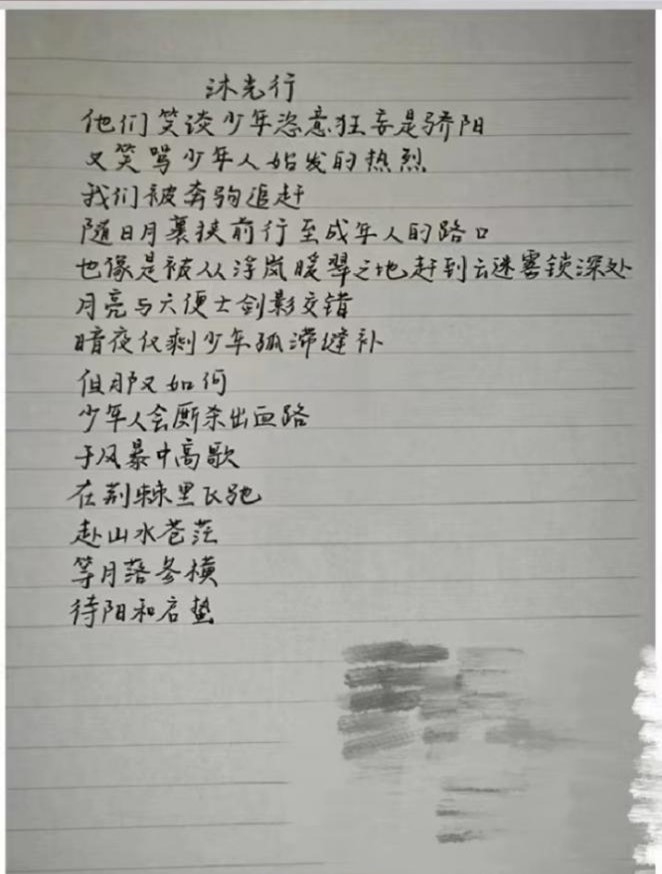 沐光行
他们笑谈少年恣意狂妄是骄阳
又笑骂少年人始发的热烈
我们被奔驹追赶
随日月裹狭前行至成年人的路口
也像是被从浮岚暖翠之地赶到云迷雾锁深处
月亮与六便士剑影交错
暗夜仅剩少年孤滞缝补
但那又如何
少年人会厮杀出血路
于风暴中高歌
在荆棘里飞驰
赴山水苍茫
等月落参横
待阳和启蛰